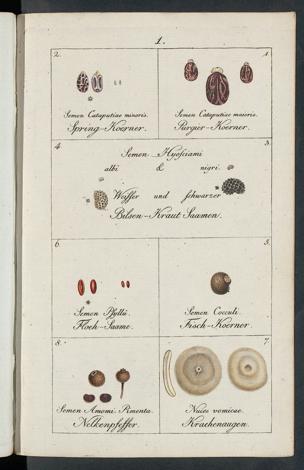 1.
2.
Semen Cataputiae minoris.
Spring-Koerner.
1.
Semen Cataputiae maioris.
Purgier-Koerner.
4.
3.
Semen Hyosciami
albi & nigri.
Weisser und schwarzer
Bilsen-Kraut Saamen.
6.
Semen Psyllii.
Floeh-Saame.
5.
Semen Cocculi.
Fisch-Koerner.
8.
Semen Amomi. Pimenta.
Nelkenpfeffer.
7.
Nuces vomicae.
Kraehenaugen.